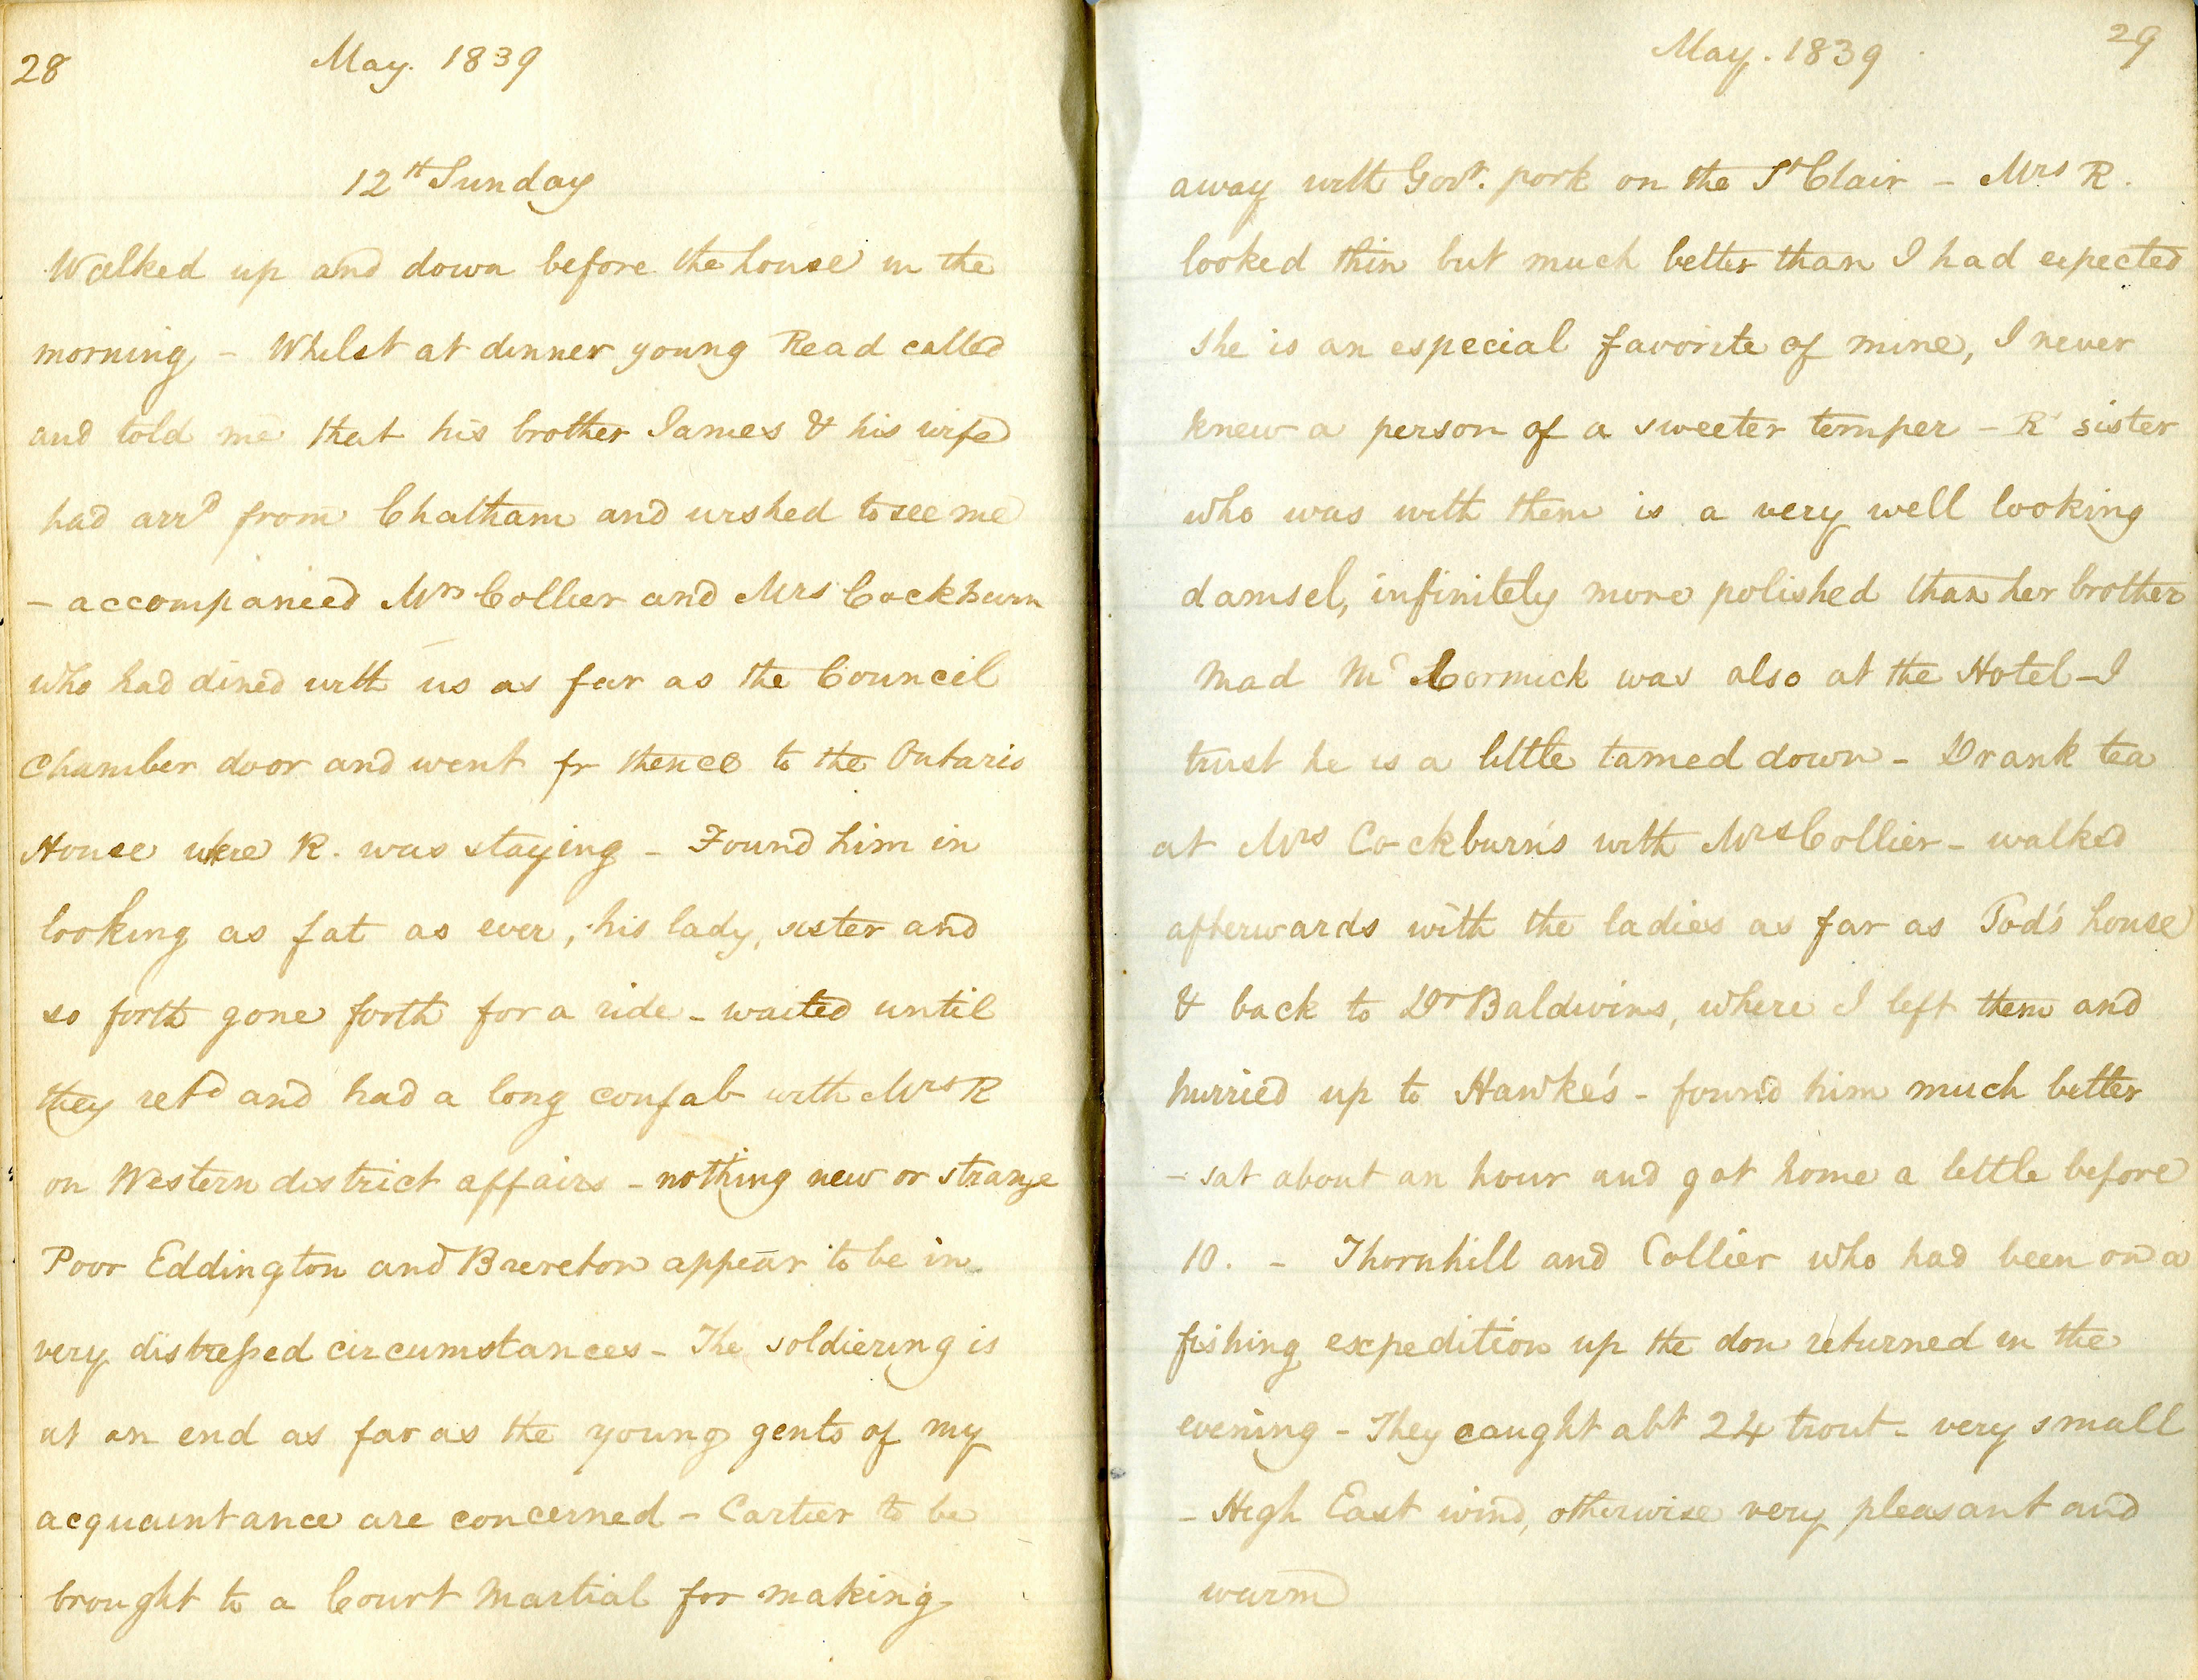 28
May. 1839
12th Sunday
Walked up and down before the house in the
morning - Whilst at dinner young Read called
and told me that his brother James & his wife
had arrd from Chatham and wished to see me
- accompanied Mrs Collier and Mrs Cockburn
who had dined with us as far as the Council
Chamber door and went fr thence to the Ontario
House where R. was staying - Found him in
looking as fat as ever, his lady, sister and
so forth gone forth for a ride - waited until
they retd and had a long confab with Mrs R
on Western district affairs - nothing new or strange
Poor Eddington and Brereton appear to be in
very distressed circumstances - The soldiering is
at an end as far as the young gents of my
acquaintance are concerned - Cartier to be
brought to a Court Martial for making
29
May. 1839
away with Govt. pork on the St Clair - Mrs R.
looked thin but much better than I had expected
she is an especial favorite of mine, I never
knew a person of a sweeter temper - Rs sister
who was with them is a very well looking
damsel, infinitely more polished than her brother
Mad Mc Cormick was also at the Hotel - I
trust he is a little tamed down - Drank tea
at Mrs Cockburn's with Mrs Collier - walked
afterwards with the ladies as far as Tod's house
& back to Dr Baldwins, where I left them and
hurried up to Hawke's - found him much better
- sat about an hour and got home a little before
10. - Thornhill and Collier who had been on a
fishing expedition up the don returned in the
evening - They caught abt 24 trout - very small
- High East wind, otherwise very pleasant and
warm